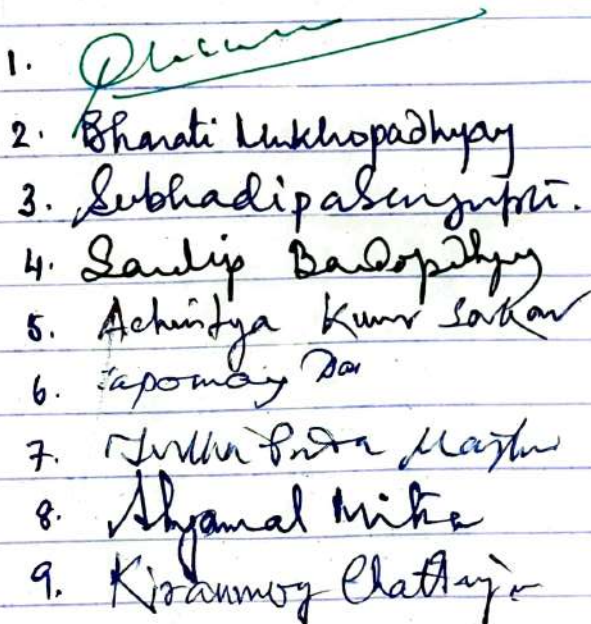 1.
2. Bharati Mukhopadhyay
3. Subhadipa Sengupta.
4. Sandip Bandopadhyay
5. Achintya Kumar Sarkar
6. Tapomoy Das
7.
8. Shyamal Mitra
9. Kiranmoy Chatterjee